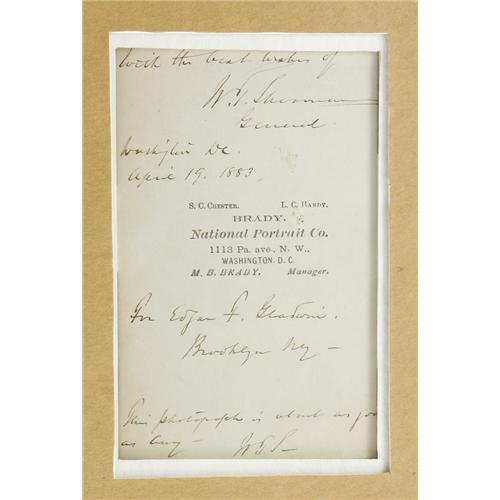 With the best wishes of
W. T. Sherman
General.
Washington DC.
April 19. 1883.
S. C. CHESTER. L. C. HANDY.
BRADY.
National Portrait Co.
1113 Pa. ave., N. W.,
WASHINGTON. D. C.
M. B. BRADY. Manager.
For Edgar F. Gladwin.
Brooklyn NY —
This photograph is about as goo
as any —
W.T.S—